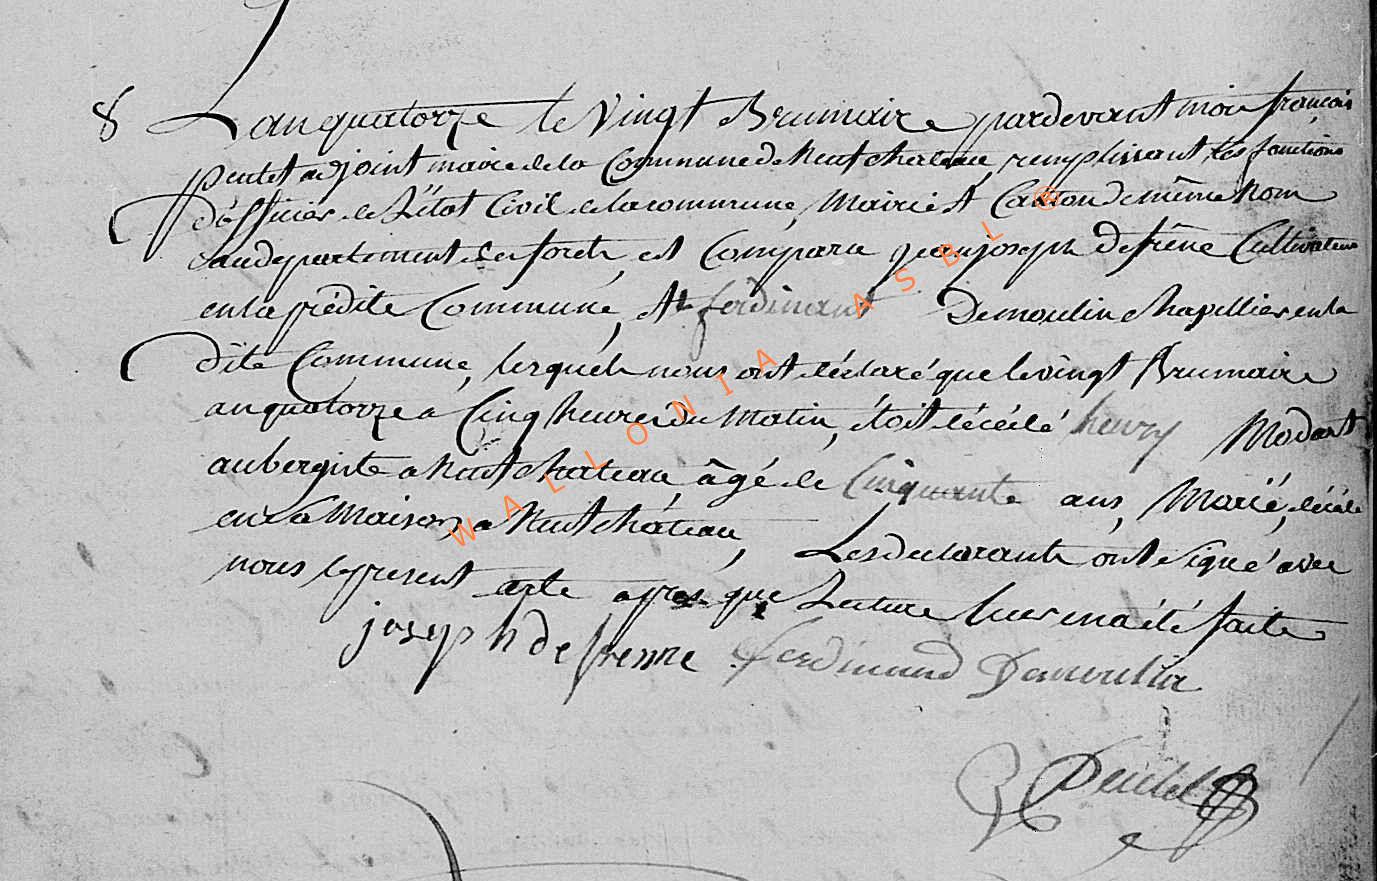 8 L'an quatorze le vingt Brumaire pardevant moi françois
peutet adjoint maire de la Commune de Neufchateau, remplissant les fonctions
d'officier de L'état Civil de la commune, Mairie et Canton de même Nom
au departement des forets, est Comparu jean joseph Defrêne Cultivateur
en la prédite Commune, et ferdinant Demoulin chapellier en la
dite Commune, lesquels nous ont déclaré que le vingt Brumaire
an quatorze a Cinq heures du Matin, étoit décédé henry Modart
aubergiste a Neufchateau âgé de Cinquante ans, Marié, décédé
en sa Maison, a Neufchâteau, Les declarants ont signé avec
nous le present acte apres que Lecture leur en a été faite
joseph de fresne ferdinand Demoulin
Peutet
WALLONIA ASBL ®